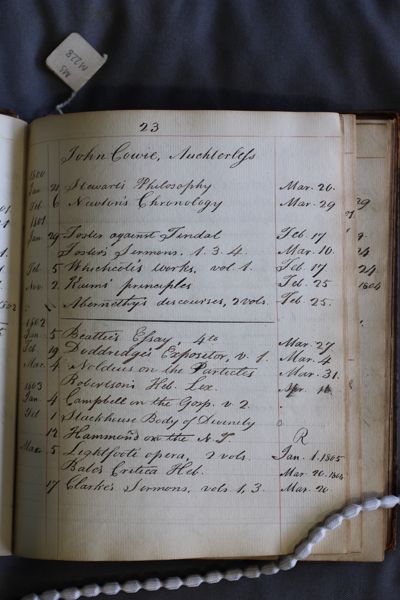 MS
M228
23
John Cowie, Auchterless
1800
Jan. 21 Stewart's Philosophy Mar. 20.
Feb. 6 Newton's Chronology Mar. 29
1801
Jan. 29 Foster against Tindal Feb. 17
Foster's Sermons. 1. 3. 4. Mar. 10.
Feb. 5 Whichcote's works, vol. 1. Feb. 17
Nov. 2. Kaims' principles Feb. 25
Abernethy's discourses, 2 vols. Feb. 25.
1802
Jan. 5 Beattie's Essay, 4to Mar. 27
Feb. 19 Doddridge's Expositor, v. 1. Mar. 4
Mar. 4 Noldius on the Particles Mar. 31.
Robertson's Heb. Lex. Apr. 10
1803
Jan. 4 Campbell on the Gosp. v. 2.
Feb. 1 Stackhouse Body of Divinity
12 Hammond on the N. T. R
Mar. 5 Lightfoote opera, 2 vols. Jan. 1. 1805
Bate's Critica Heb. Mar. 20. 1804
17 Clarke's Sermons, vols 1, 3. Mar. 20